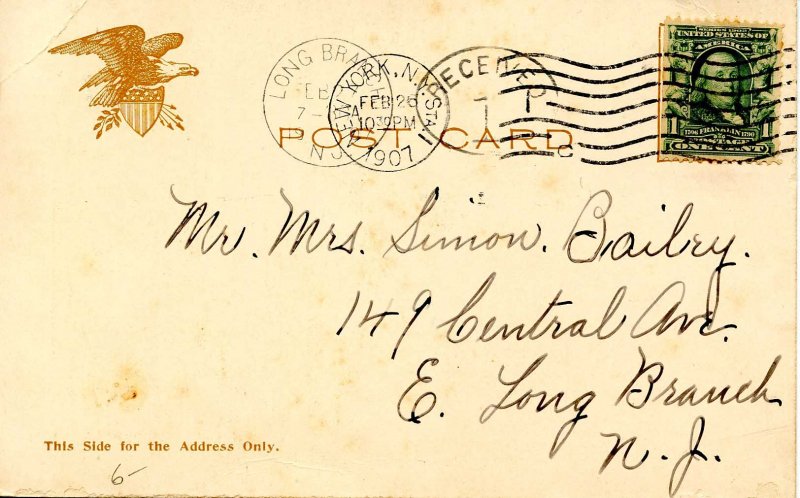 LONG BRANCH
FEB
7-
N.J.
NEW YORK, N.Y. STA
FEB 26
10 30 PM
1907
RECEIVED
1
C
SERIES 1902
UNITED STATES OF
AMERICA
1706 FRANKLIN 1790
1 POSTAGE 1
ONE CENT
POST CARD
Mr. Mrs. Simon. Bailey.
149 Central Ave.
E. Long Branch
N. J.
This Side for the Address Only.
6-